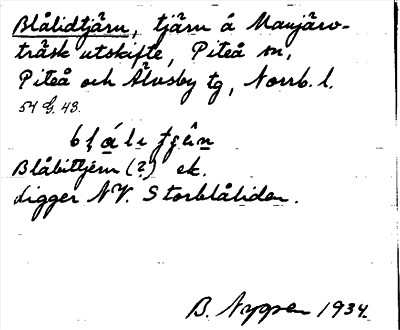 Blålidtjärn, tjärn å Manjärv-
träsk utskifte, Piteå sn,
Piteå och Älvsby tg, Norrb. l.
54 G. 43.
Blåbittjern (?) ek.
Ligger NV. Storblåliden.
B. Nygren 1934.